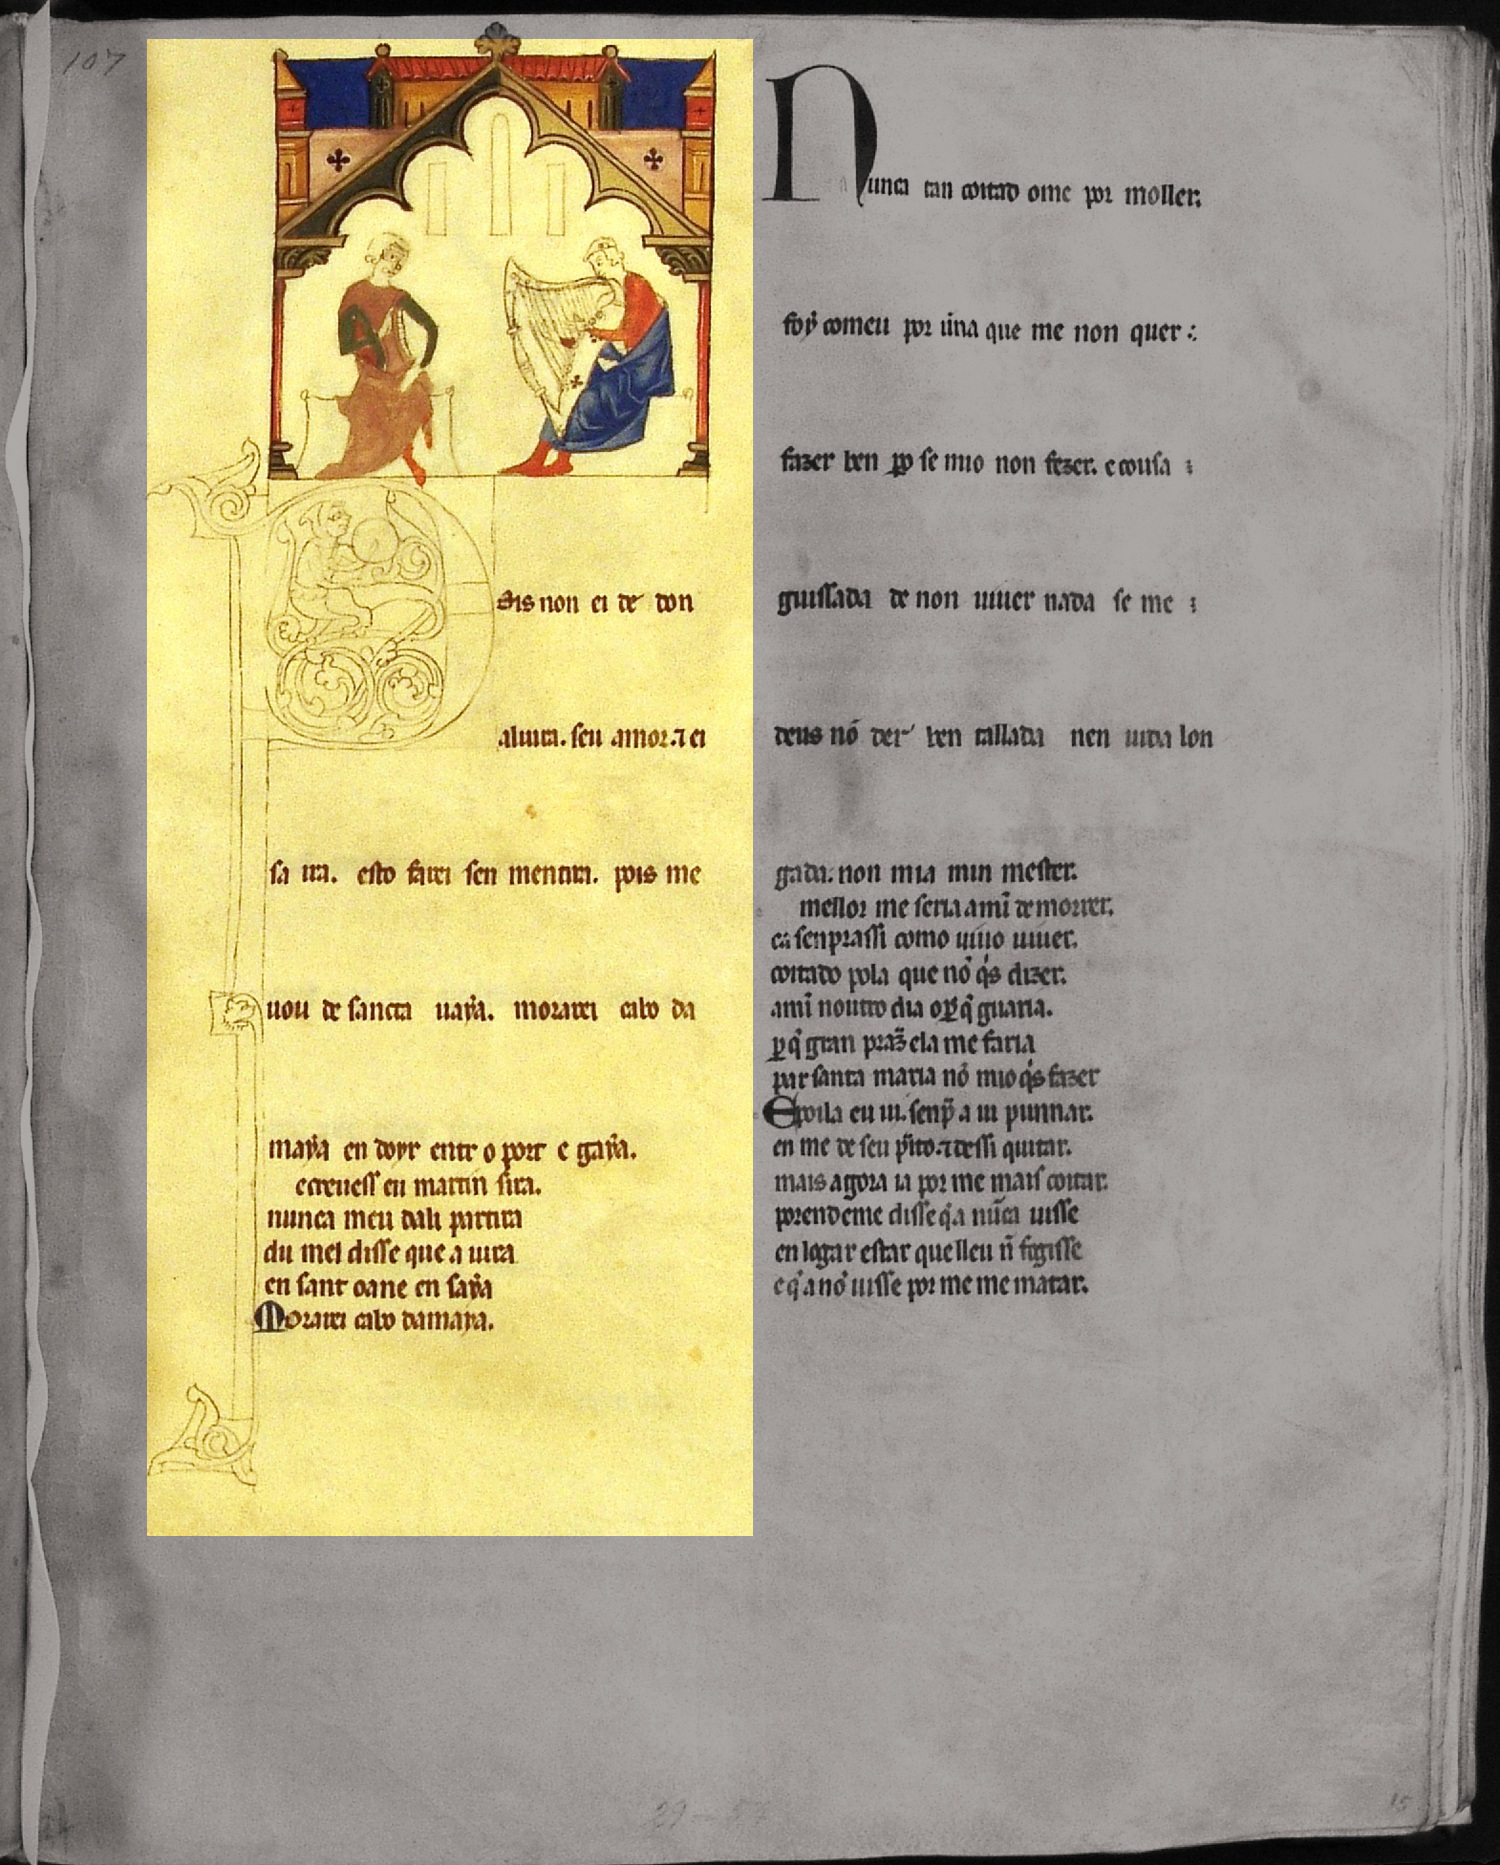 107
ois non ei de don
aluira. seu amor. ⁊ ei
sa ira. esto farei sen mentira. pois me
uou de sancta uaẏa. morarei cabo da
maẏa en doyr entr o port e gaẏa.
e creuess eu martin sira.
nunca meu dali partira
du mel disse que a uira
en sant oane en saẏa
Morarei cabo damaya.
Nunca tan coitad ome por moller.
foẏ comeu por ũna que me non quer
fazer ben ꝑo se mio non fezer. e cousa
guissada de non uiuer nada se me
deus nõ der ben tallada nen uida lon
gada. non mia min mester.
mellor me seria amĩ de morrer.
ca senpr assi como uiuo uiuer.
coitado pola que nõ q̇s dizer.
amĩ noutro dia
gran praz̃ ela me faria
par santa maria nõ mio q̇s fazer
E poila eu ui. senp̃ a ui punnar.
en me de seu p̃ito. ⁊ dessi quitar.
mais agora ia por me mais coitar.
porendeme disse q̇ a nũca uisse
en logar estar que lleu ñ fogisse
e q̇ a nõ uisse por me me matar.
15